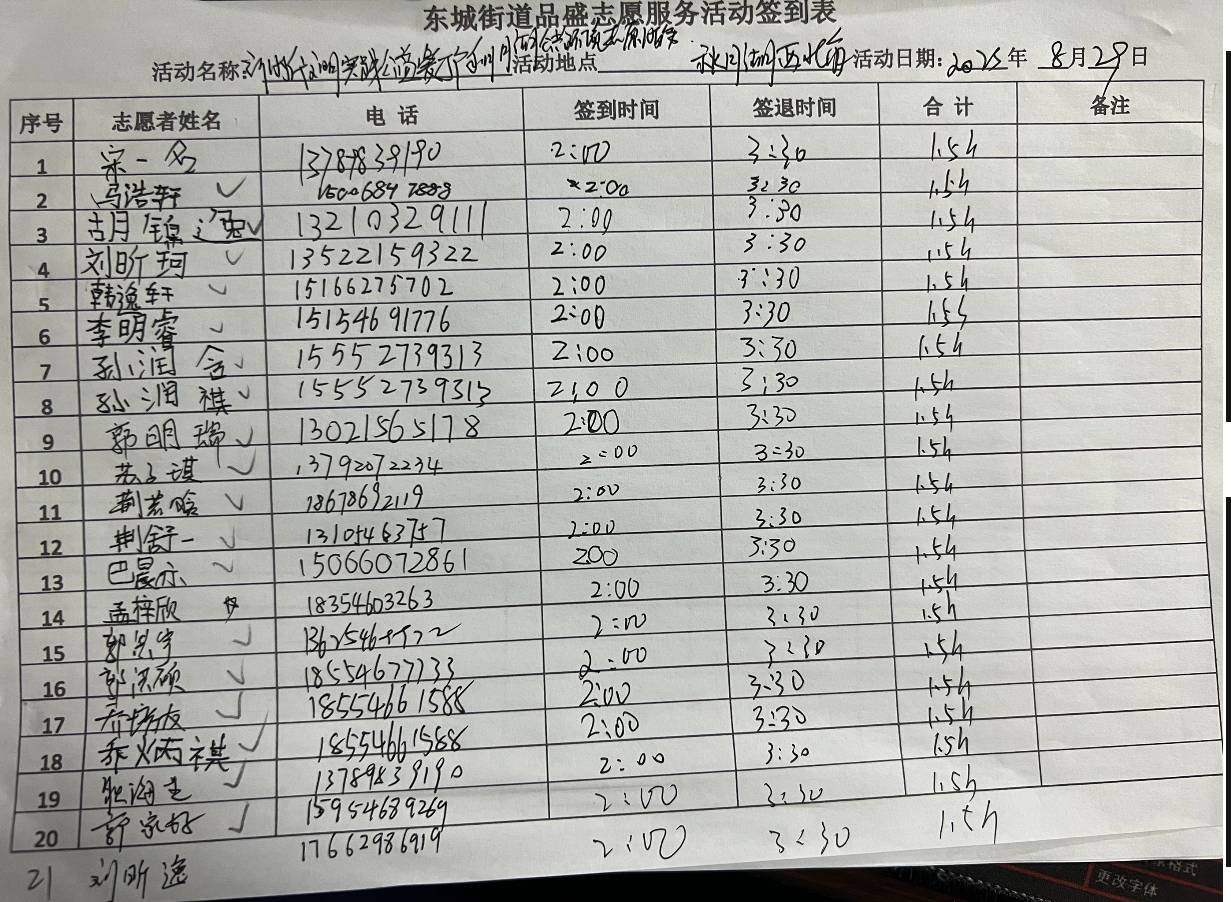 东城街道品盛志愿服务活动签到表
活动名称: 文明实践 活动地点 西北角 活动日期: 2025年 8月29日
序号 志愿者姓名 电 话 签到时间 签退时间 合 计 备注
1 宋一名 13789839190 2:00 3:30 1.5h
2 冯浩轩 ✓ 15006847888 2:00 3:30 1.5h
3 胡锦逸 ✓ 13210329111 2:00 3:30 1.5h
4 刘昕珂 ✓ 13522159322 2:00 3:30 1.5h
5 韩逸轩 ✓ 15166275702 2:00 3:30 1.5h
6 李明睿 ✓ 15154691776 2:00 3:30 1.5h
7 孙润含 ✓ 15552739313 2:00 3:30 1.5h
8 孙润祺 ✓ 15552739313 2:00 3:30 1.5h
9 郭明瑞 ✓ 13021565178 2:00 3:30 1.5h
10 苏子琪 ✓ 13792072234 2:00 3:30 1.5h
11 荆若晗 ✓ 18678692119 2:00 3:30 1.5h
12 荆舒一 ✓ 13105463757 2:00 3:30 1.5h
13 巴晨亦 ✓ 15066072861 200 3:30 1.5h
14 孟梓欣 18354603263 2:00 3:30 1.5h
15 ✓ 2:00 3:30 1.5h
16 ✓ 18554677733 2:00 3:30 1.5h
17 ✓ 18554661588 2:00 3:30 1.5h
18 乔炳祺 ✓ 18554661588 2:00 3:30 1.5h
19 ✓ 13789839190 2:00 3:30 1.5h
20 ✓ 15954689269 2:00 3:30 1.5h
21 刘昕逸 17662986919 2:00 3:30 1.5h
更改字体